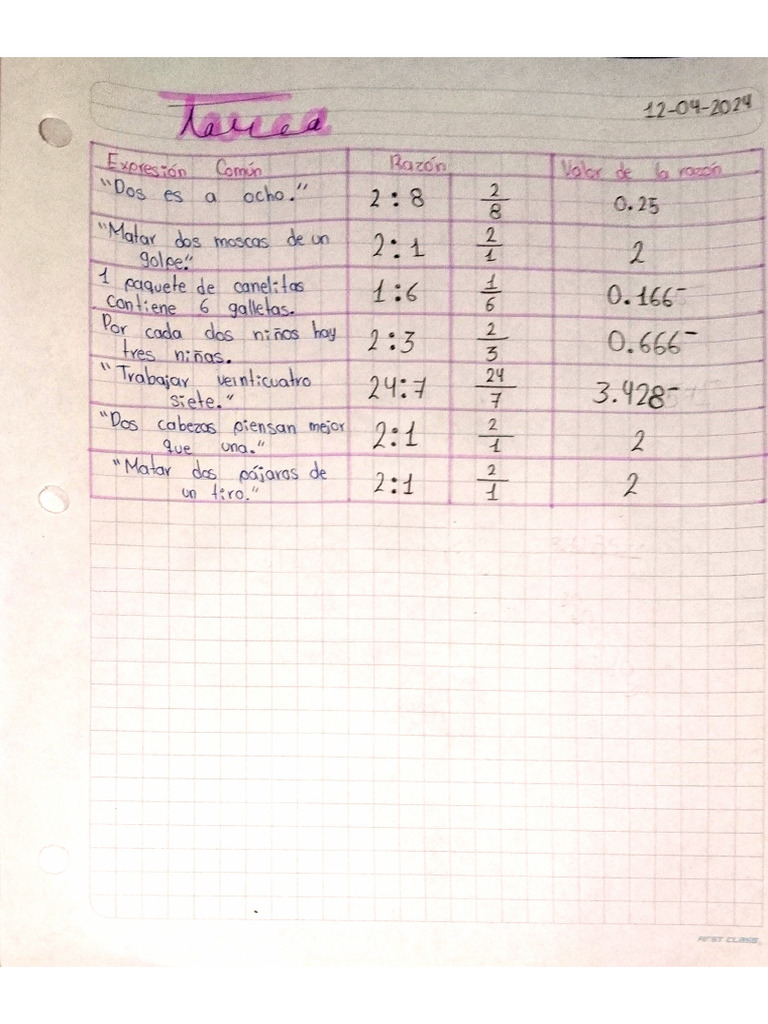 Tarea
12-04-2024
Expresión Común Razón Valor de la razón
"Dos es a ocho." 2:8 2/8 0.25
"Matar dos moscas de un
golpe." 2:1 2/1 2
1 paquete de canelitas
contiene 6 galletas. 1:6 1/6 0.166-
Por cada dos niños hay
tres niñas. 2:3 2/3 0.666-
"Trabajar veinticuatro
siete." 24:7 24/7 3.428-
"Dos cabezas piensan mejor
que una." 2:1 2/1 2
"Matar dos pájaros de
un tiro." 2:1 2/1 2
FIRST CLASS